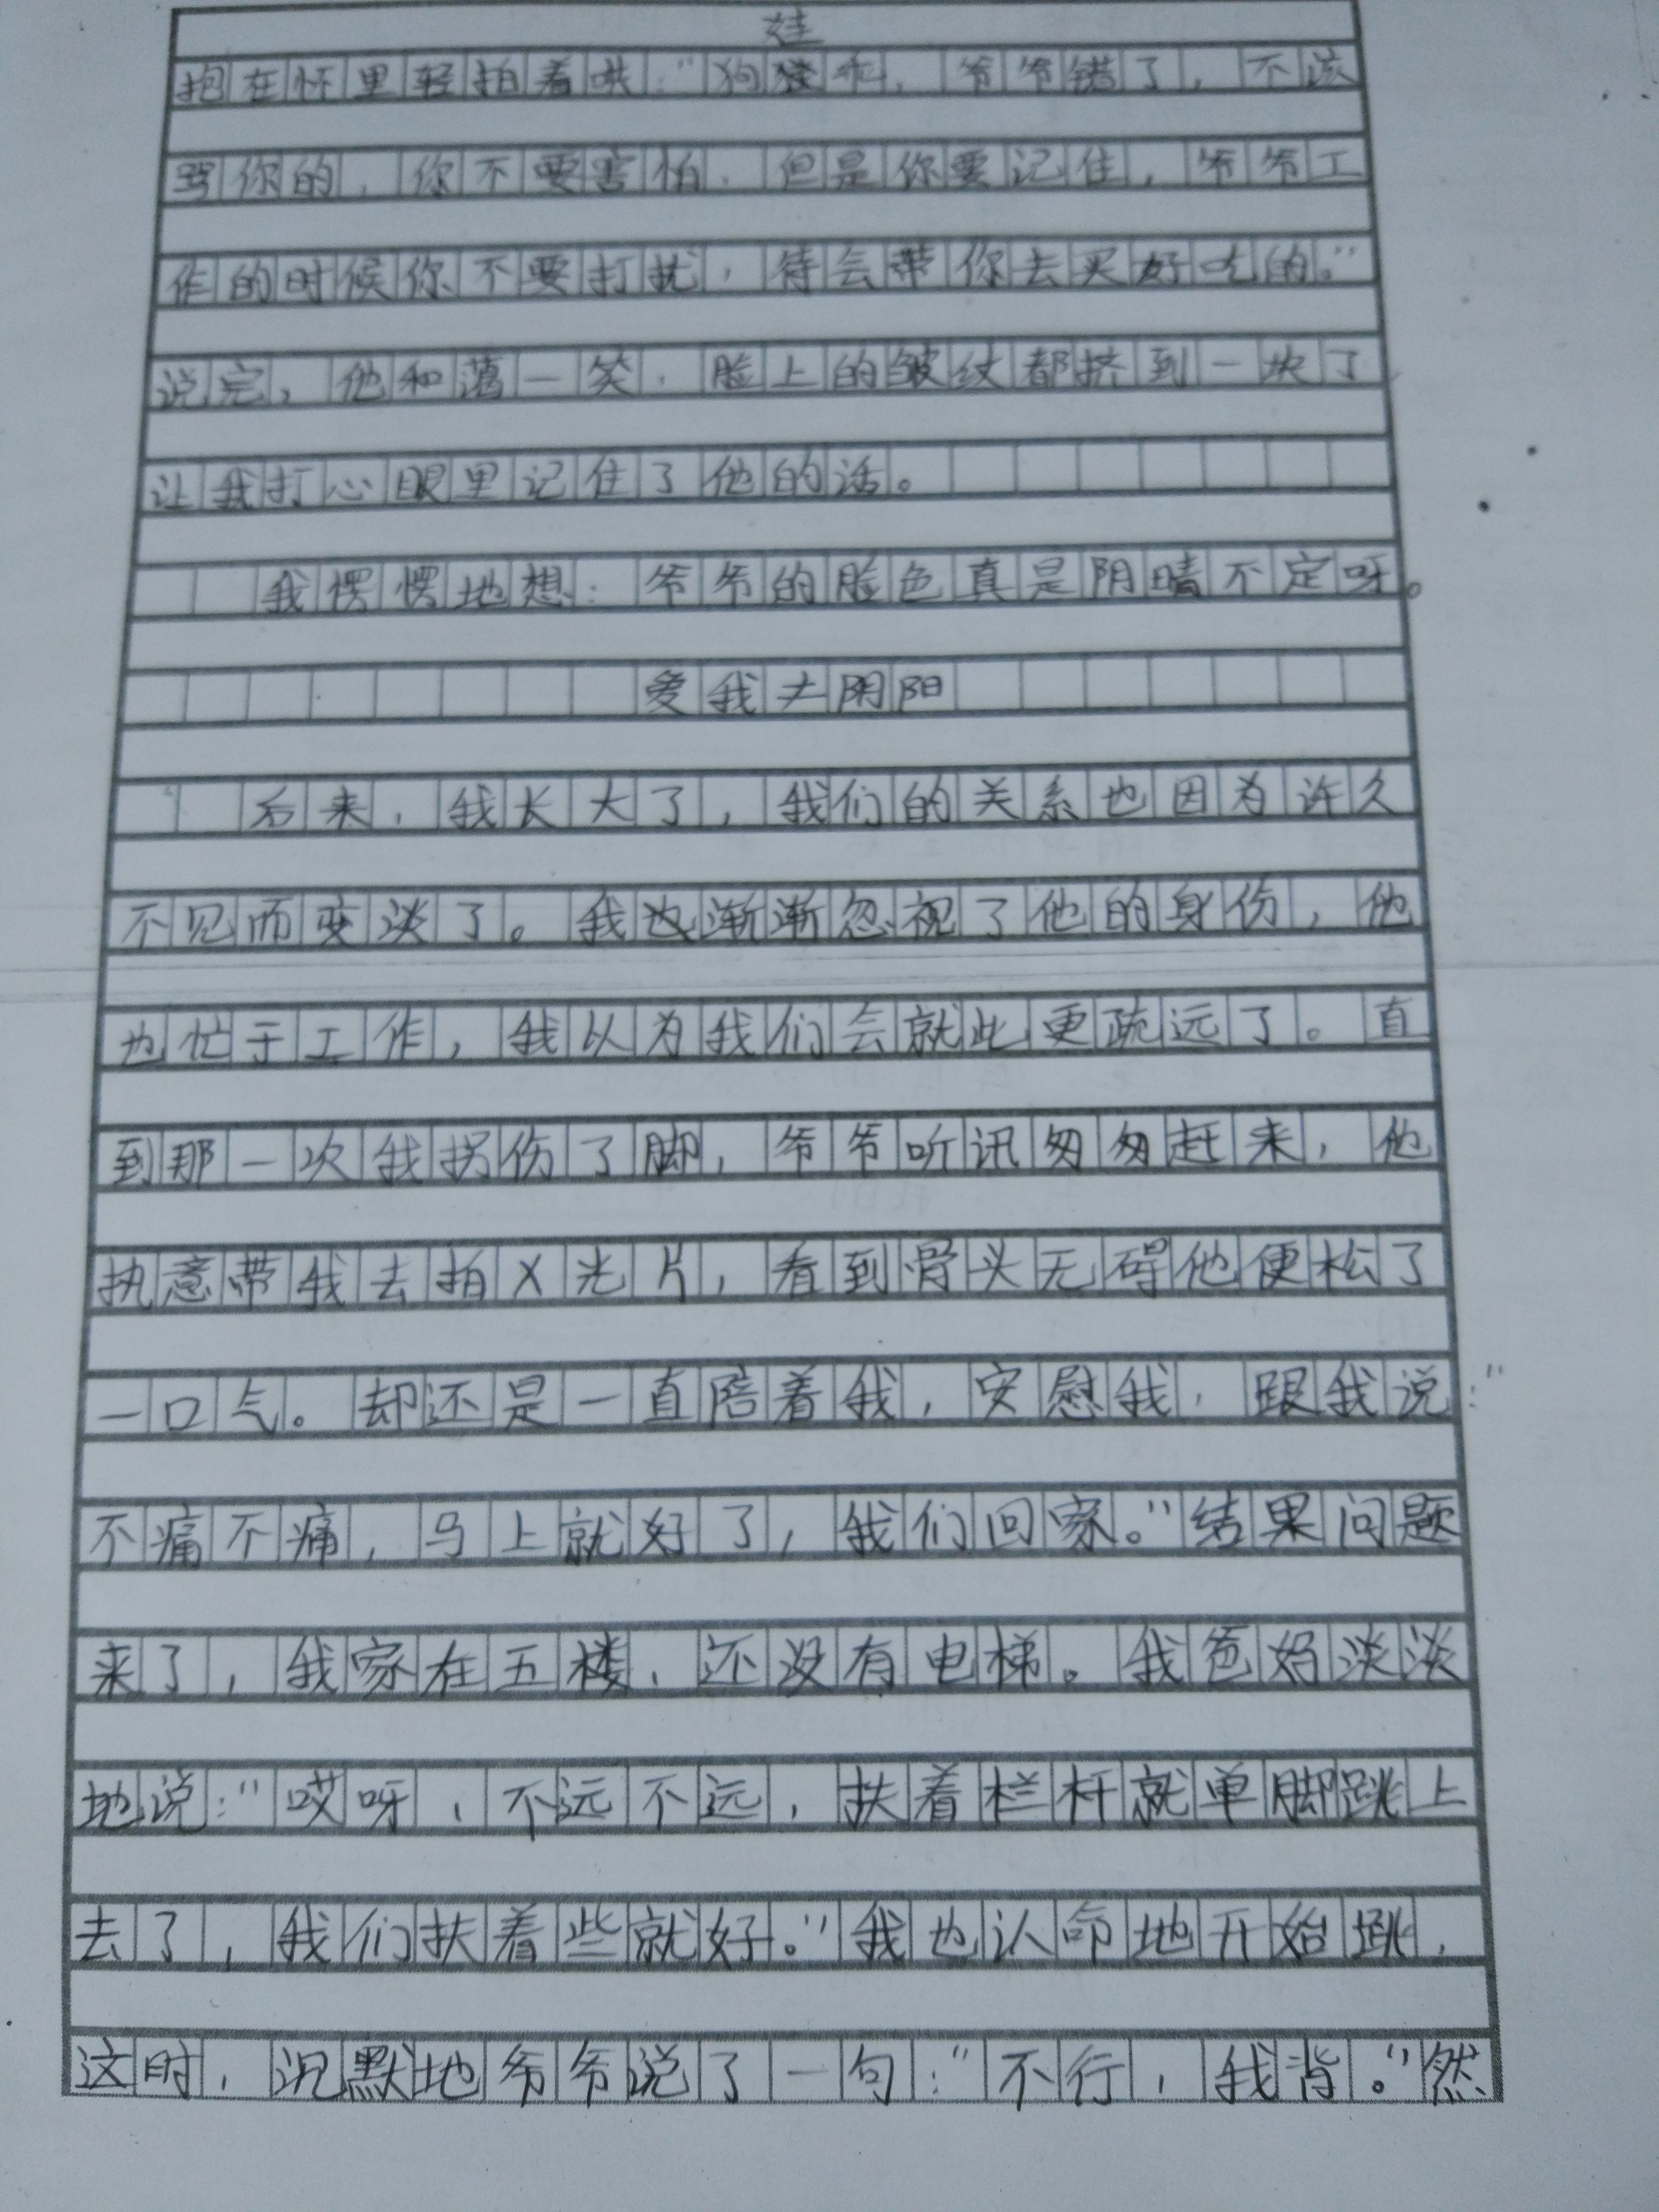 娃
抱在怀里轻拍着哄:"狗乖,爷爷错了,不该
骂你的,你不要害怕,但是你要记住,爷爷工
作的时候你不要打扰,待会带你去买好吃的。"
说完,他和蔼一笑,脸上的皱纹都挤到一块了,
让我打心眼里记住了他的话。
我愣愣地想:爷爷的脸色真是阴晴不定呀。
爱我无阴阳
后来,我长大了,我们的关系也因为许久
不见而变淡了。我也渐渐忽视了他的身份,他
也忙于工作,我以为我们会就此更疏远了。直
到那一次我拐伤了脚,爷爷听讯匆匆赶来,他
执意带我去拍X光片,看到骨头无碍他便松了
一口气。却还是一直陪着我,安慰我,跟我说:"
不痛不痛,马上就好了,我们回家。"结果问题
来了,我家在五楼,还没有电梯。我爸妈淡淡
地说:"哎呀,不远不远,扶着栏杆就单脚跳上
去了,我们扶着些就好。"我也认命地开始跳,
这时,沉默地爷爷说了一句:"不行,我背。"然